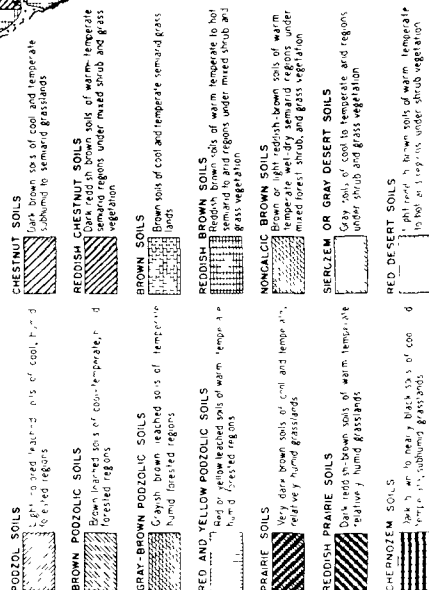 PODZOL SOILS
forested regions
BROWN PODZOLIC SOILS
Brown leached soils of cool-temperate,
forested regions
GRAY-BROWN PODZOLIC SOILS
Grayish brown leached soils of temperate
humid forested regions
RED AND YELLOW PODZOLIC SOILS
Red or yellow leached soils of warm temperate
humid forested regions
PRAIRIE SOILS
Very dark brown soils of cool and temperate,
relatively humid grasslands
REDDISH PRAIRIE SOILS
Dark reddish-brown soils of warm temperate
relatively humid grasslands
CHERNOZEM SOILS
Dark brown to nearly black soils of cool
subhumid grasslands
CHESTNUT SOILS
Dark brown soils of cool and temperate
subhumid to semiarid grasslands
REDDISH CHESTNUT SOILS
Dark reddish brown soils of warm-temperate
semiarid regions under mixed shrub and grass
vegetation
BROWN SOILS
Brown soils of cool and temperate semiarid grass
lands
REDDISH BROWN SOILS
Reddish brown soils of warm temperate to hot
semiarid to arid regions under mixed shrub and
grass vegetation
NONCALCIC BROWN SOILS
Brown or light reddish-brown soils of warm
temperate wet-dry semiarid regions under
mixed forest shrub, and grass vegetation
SIEROZEM OR GRAY DESERT SOILS
Gray soils of cool to temperate arid regions
under shrub and grass vegetation
RED DESERT SOILS
Light reddish brown soils of warm temperate
to hot arid regions under shrub vegetation